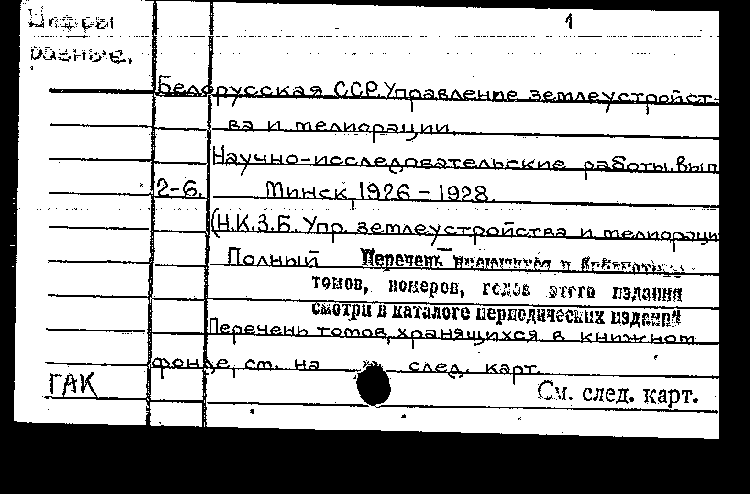 Цифры 1
разные.
Белорусская ССР. Управление землеустройст-
ва и мелиорации.
Научно-исследовательские работы. вып
2-6. Минск, 1926 - 1928.
(Н.К.З.Б. Упр. землеустройства и мелиораци
Полный Перечень имеющихся в библиотеке
томов, номеров, годов этого издания
смотри в каталоге периодических изданий
Перечень томов, хранящихся в книжном
фонде, см. на след. карт.
ГАК См. след. карт.